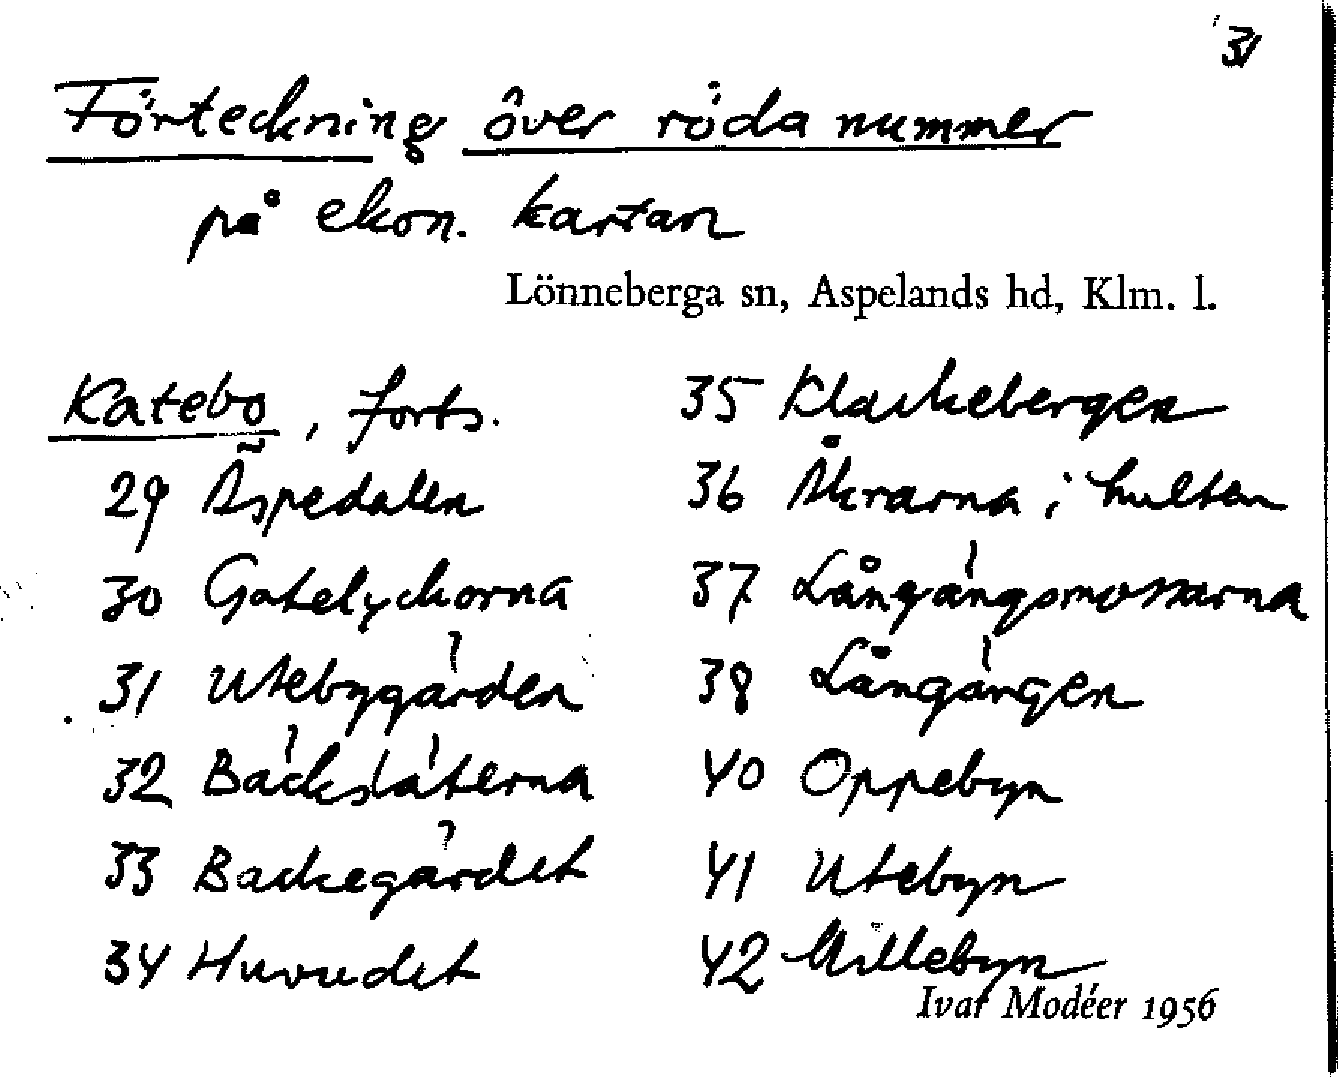 31
Förteckning över röda nummer
på ekon. kartan
Lönneberga sn, Aspelands hd, Klm. l.
Katebo, forts.
29 Äspedalen
30 Gatelyckorna
31 Utebygården
32 Bäckslåterna
33 Backegärdet
34 Huvudet
35 Klackebergen
36 Åkrarna i hulten
37 Långängsmossarna
38 Långängen
40 Oppebyn
41 Utebyn
42 Millebyn
Ivar Modéer 1956